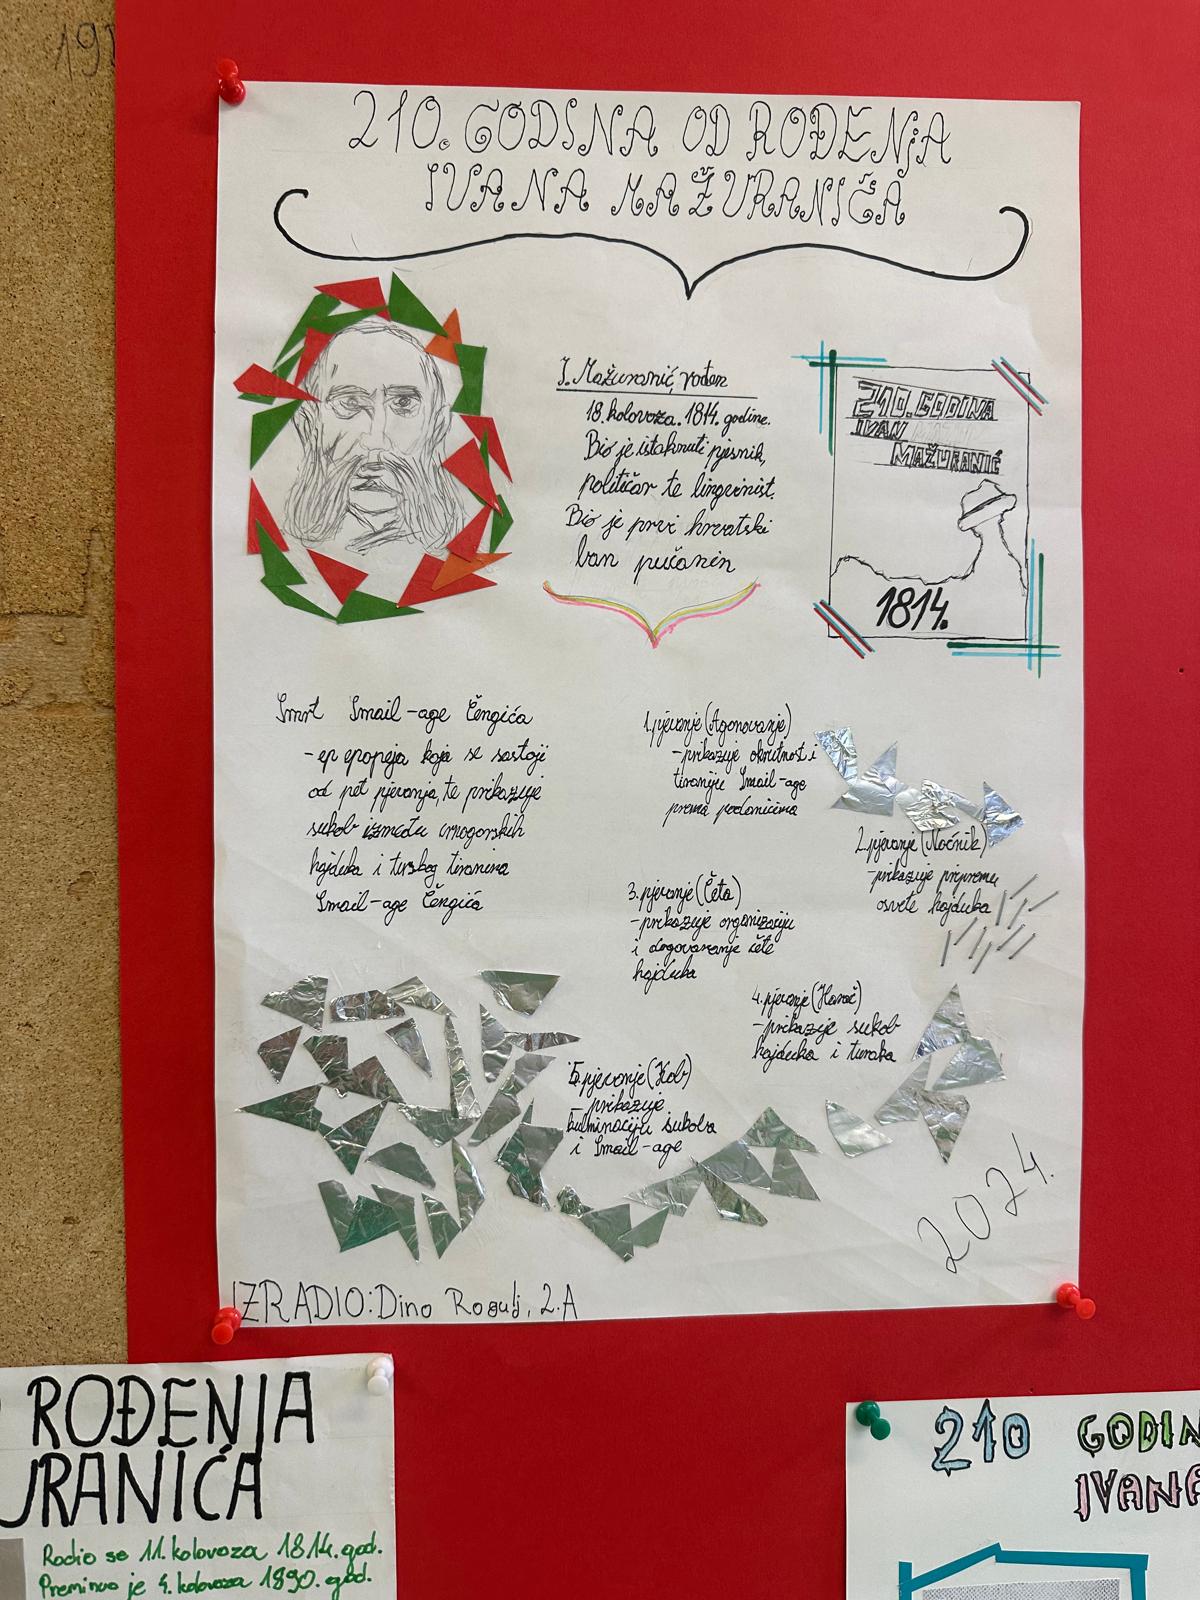 210. GODINA OD ROĐENjA
IVANA MAŽURANIĆA
I. Mažuranić, rođen
18. kolovoza. 1814. godine.
Bio je istaknuti pjesnik,
političar te lingvinist.
Bio je prvi hrvatski
ban pučanin
210. GODINA
IVAN
MAŽURANIĆ
1814.
Smrt Smail-age Čengića
-ep epopeja koja se sastoji
od pet pjevanja, te prikazuje
sukob između crnogorskih
hajduka i turskog tiranina
Smail-age Čengića
1.pjevanje (Agonovanje)
-prikazuje okrutnost i
tiraniju Smail-age
prema podanicima
2.pjevanje (Noćnik)
-prikazuje pripremu
osvete hajduka
3.pjevanje (Četa)
-prikazuje organizaciju
i dogovaranje čete
hajduka
4.pjevanje (Harač)
-prikazije sukob
hajduka i turaka
5.pjevanje (Kob)
-prikazuje
kulminaciju sukoba
i Smail-age
2024.
IZRADIO: Dino Rogulj, 2.A
ROĐENJA
URANIĆA
Rodio se 11. kolovoza 1814. god.
Preminuo je 4. kolovoza 1890. god.
210 GODIN
IVANA